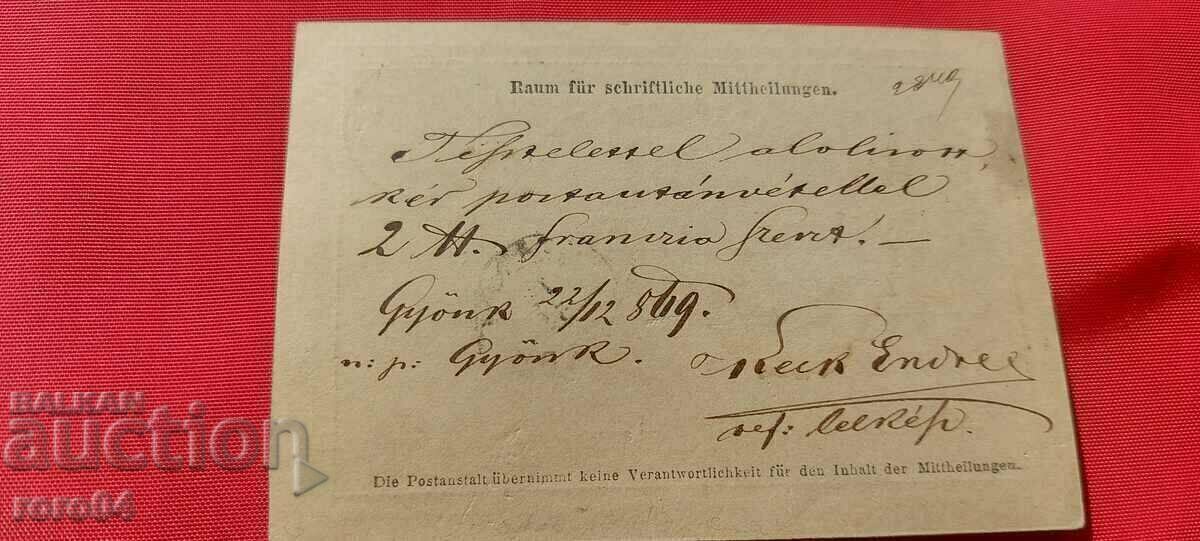 Raum für schriftliche Mittheilungen.
Tisztelettel alolirott
kér postautánvétellel
2 tt. franczia szeszt! —
Gyönk 22/12 869.
u: p: Gyönk. Keck Endre
ref: lelkész.
Die Postanstalt übernimmt keine Verantwortlichkeit für den Inhalt der Mittheilungen.
BALKAN
auction
roro04